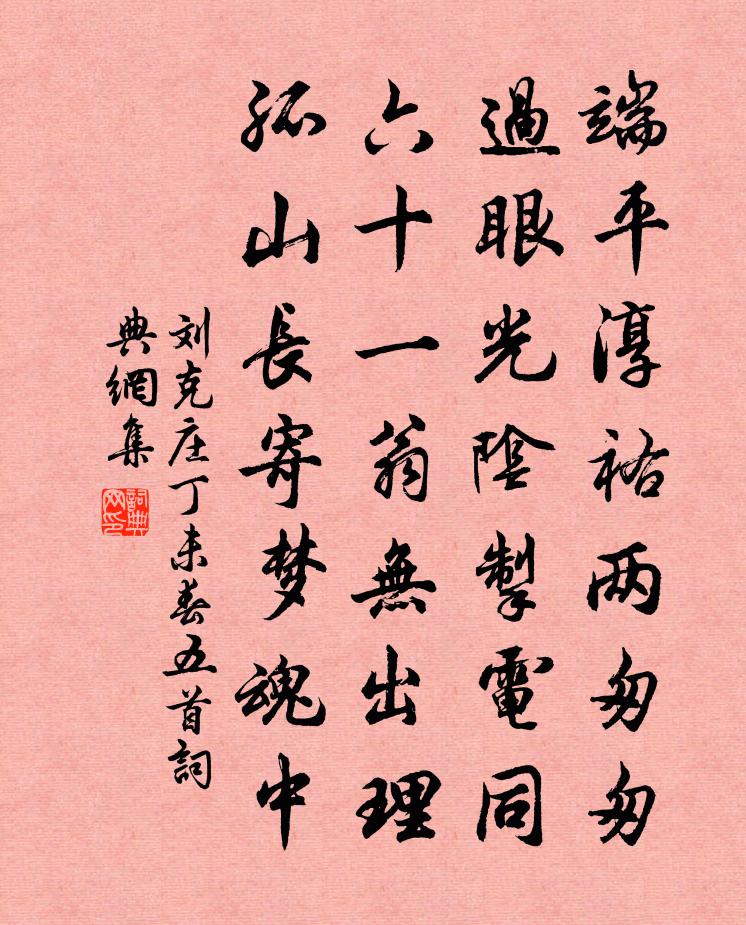 端平淳祐两匆匆
過眼光陰掣電同
六十一翁無出理
孤山長寄梦魂中
刘克庄丁未春五首詞
典網集
詞典网印